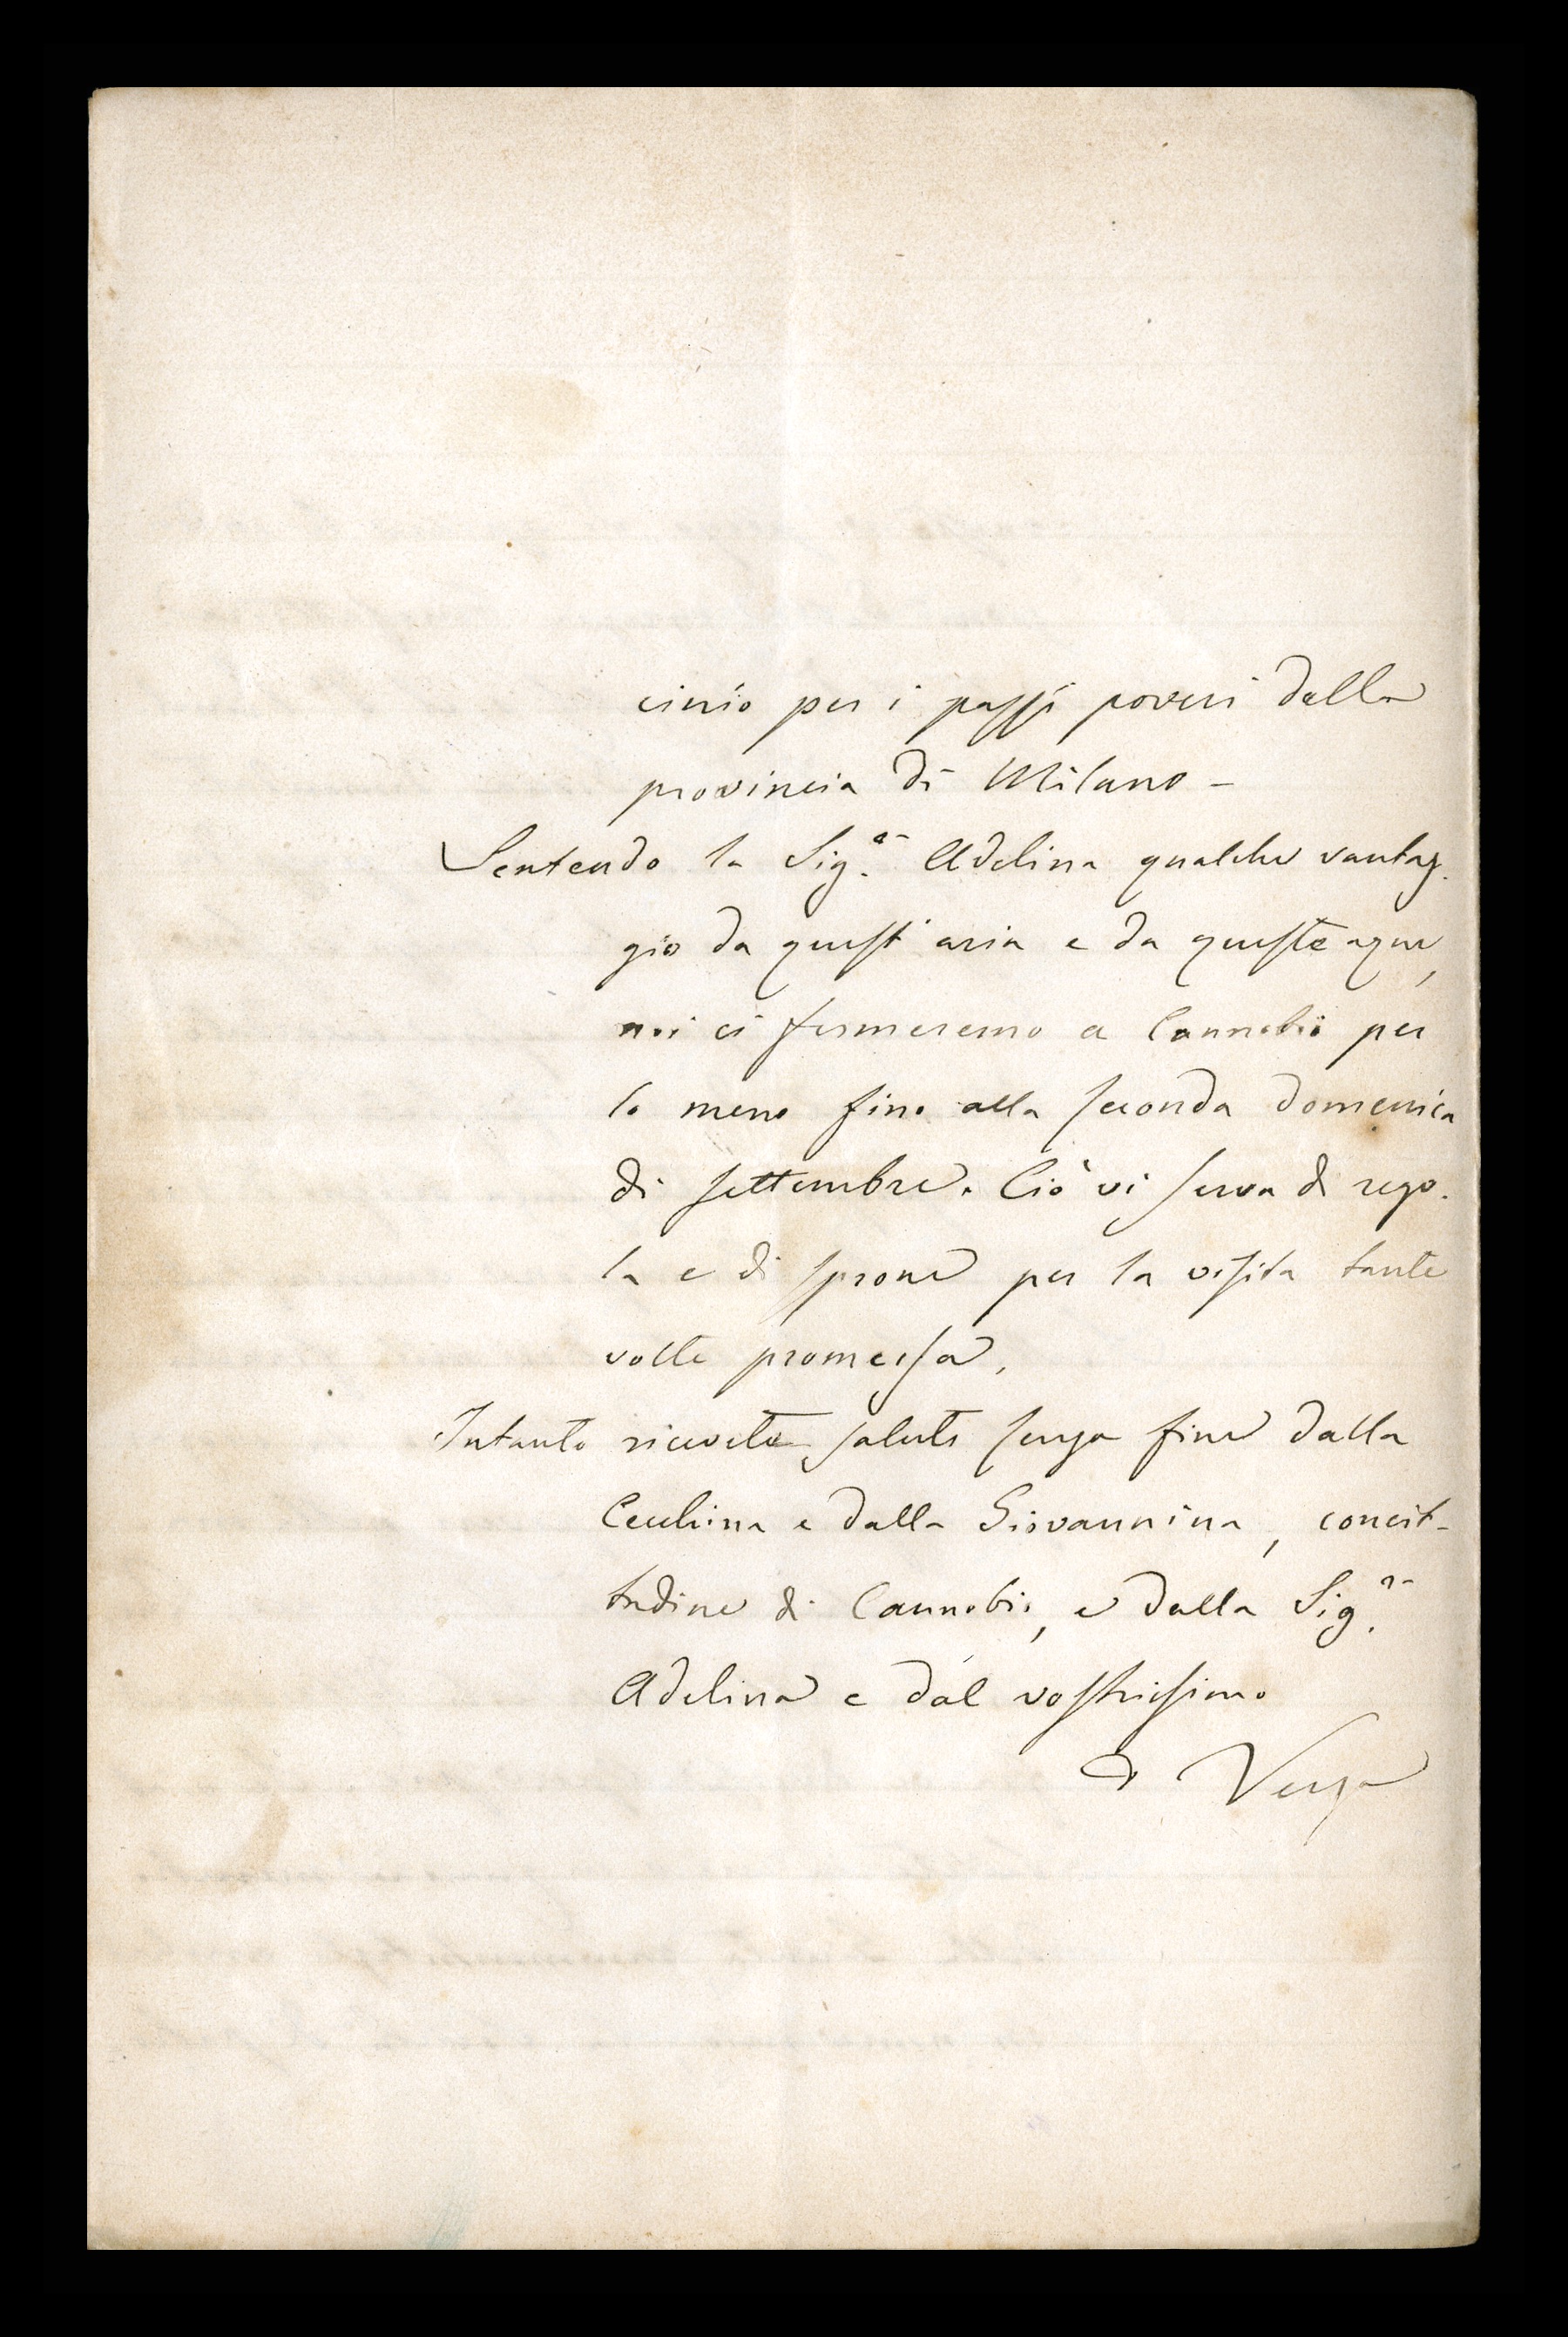 cinio per i pazzi poveri della
provincia di Milano –
Sentendo la Sig.ra Adelina qualche vantag-
gio da quest'aria e da queste acque,
noi ci fermeremo a Cannobio per
lo meno fino alla seconda domenica
di settembre. Ciò vi serva di rego-
la e di sprone per la visita tante
volte promessa.
Intanto ricevete saluti senza fine dalla
Cecchina e dalla Giovannina, concit-
tadine di Cannobio, e dalla Sig.ra
Adelina e dal vostrissimo
Verga